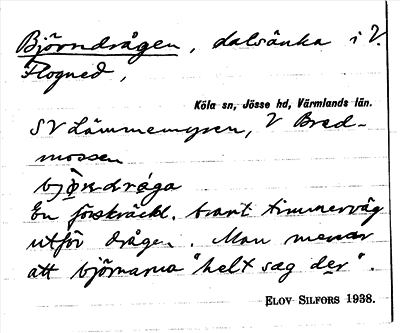 Björndrågen, dalsänka i V.
Flogned,
Köla sn, Jösse hd, Värmlands län.
SV Lämmemyren, V Bred-
mossen
En förskräckl. brant timmerväg
utför drågen. Man menar
att björnarna "helt sag der".
ELOV SILFORS 1938.